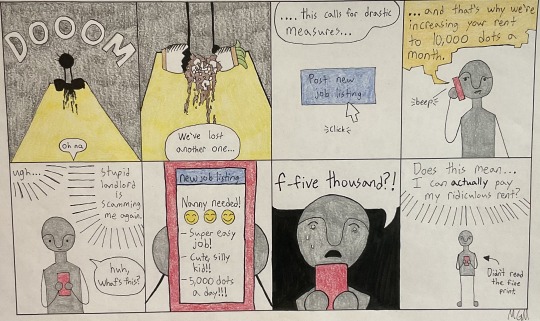 DOOOM
Oh no.
We've lost
another one...
.... this calls for drastic
measures...
Post new
job listing
click
... and that's why we're
increasing your rent
to 10,000 dots a
month.
beep
ugh...
stupid
landlord
is
scamming
me again.
huh,
what's this?
New job listing
Nanny needed!
- Super easy
job!
- Cute, silly
kid!!
- 5,000 dots
a day!!!
f-five thousand?!
Does this mean...
I can actually pay
my ridiculous rent?
Didn't read
the fine
print
M.G.M